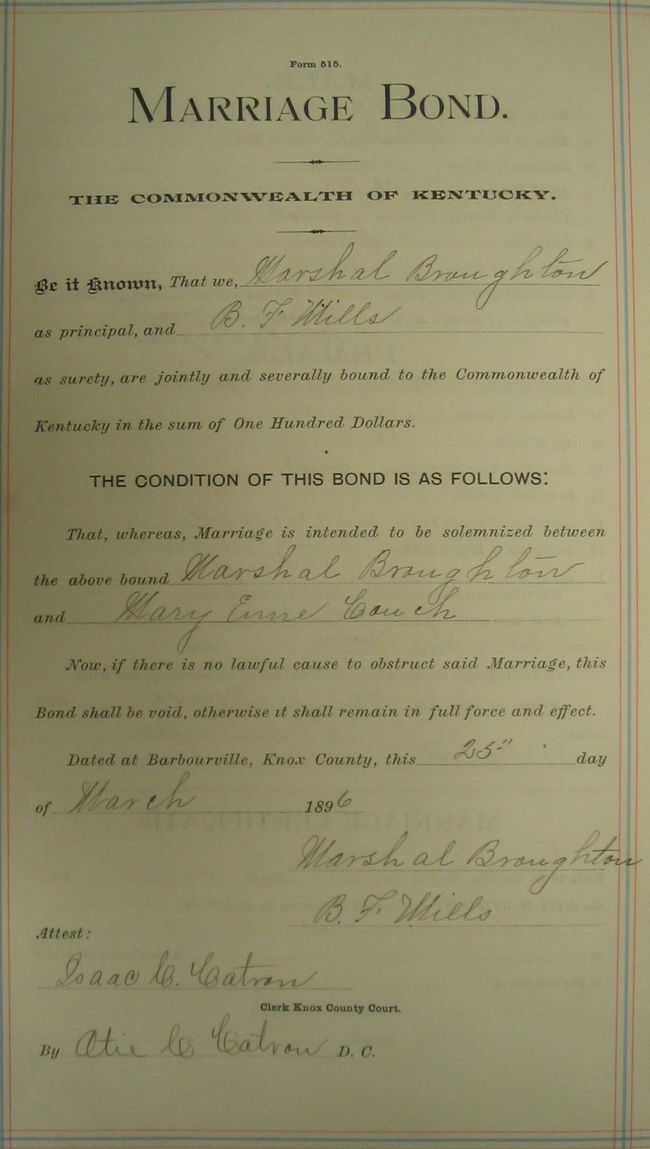 Form 515.
MARRIAGE BOND.
THE COMMONWEALTH OF KENTUCKY.
Be it Known, That we, Marshal Broughton
as principal, and B. F Mills
as surety, are jointly and severally bound to the Commonwealth of
Kentucky in the sum of One Hundred Dollars.
THE CONDITION OF THIS BOND IS AS FOLLOWS:
That, whereas, Marriage is intended to be solemnized between
the above bound Marshal Broughton
and Mary Couch
Now, if there is no lawful cause to obstruct said Marriage, this
Bond shall be void, otherwise it shall remain in full force and effect.
Dated at Barbourville, Knox County, this 25" day
of March 1896
Marshal Broughton
B. F Mills
Attest:
Isaac C. Catron
Clerk Knox County Court.
By Otie C Catron D. C.